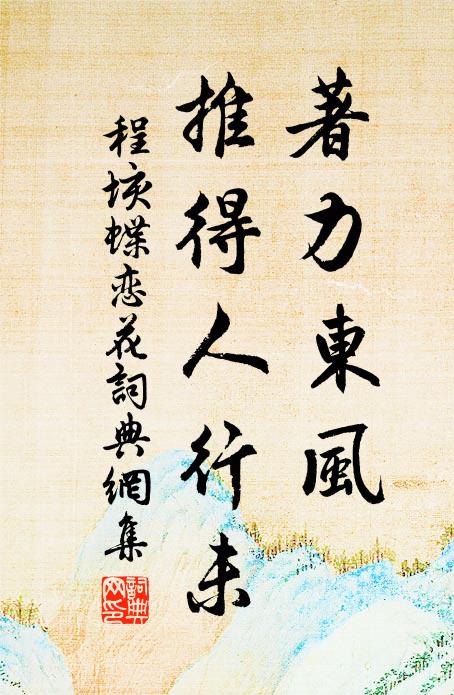 著力東風
推得人行未
程垓蝶恋花詞典網集
詞典网印